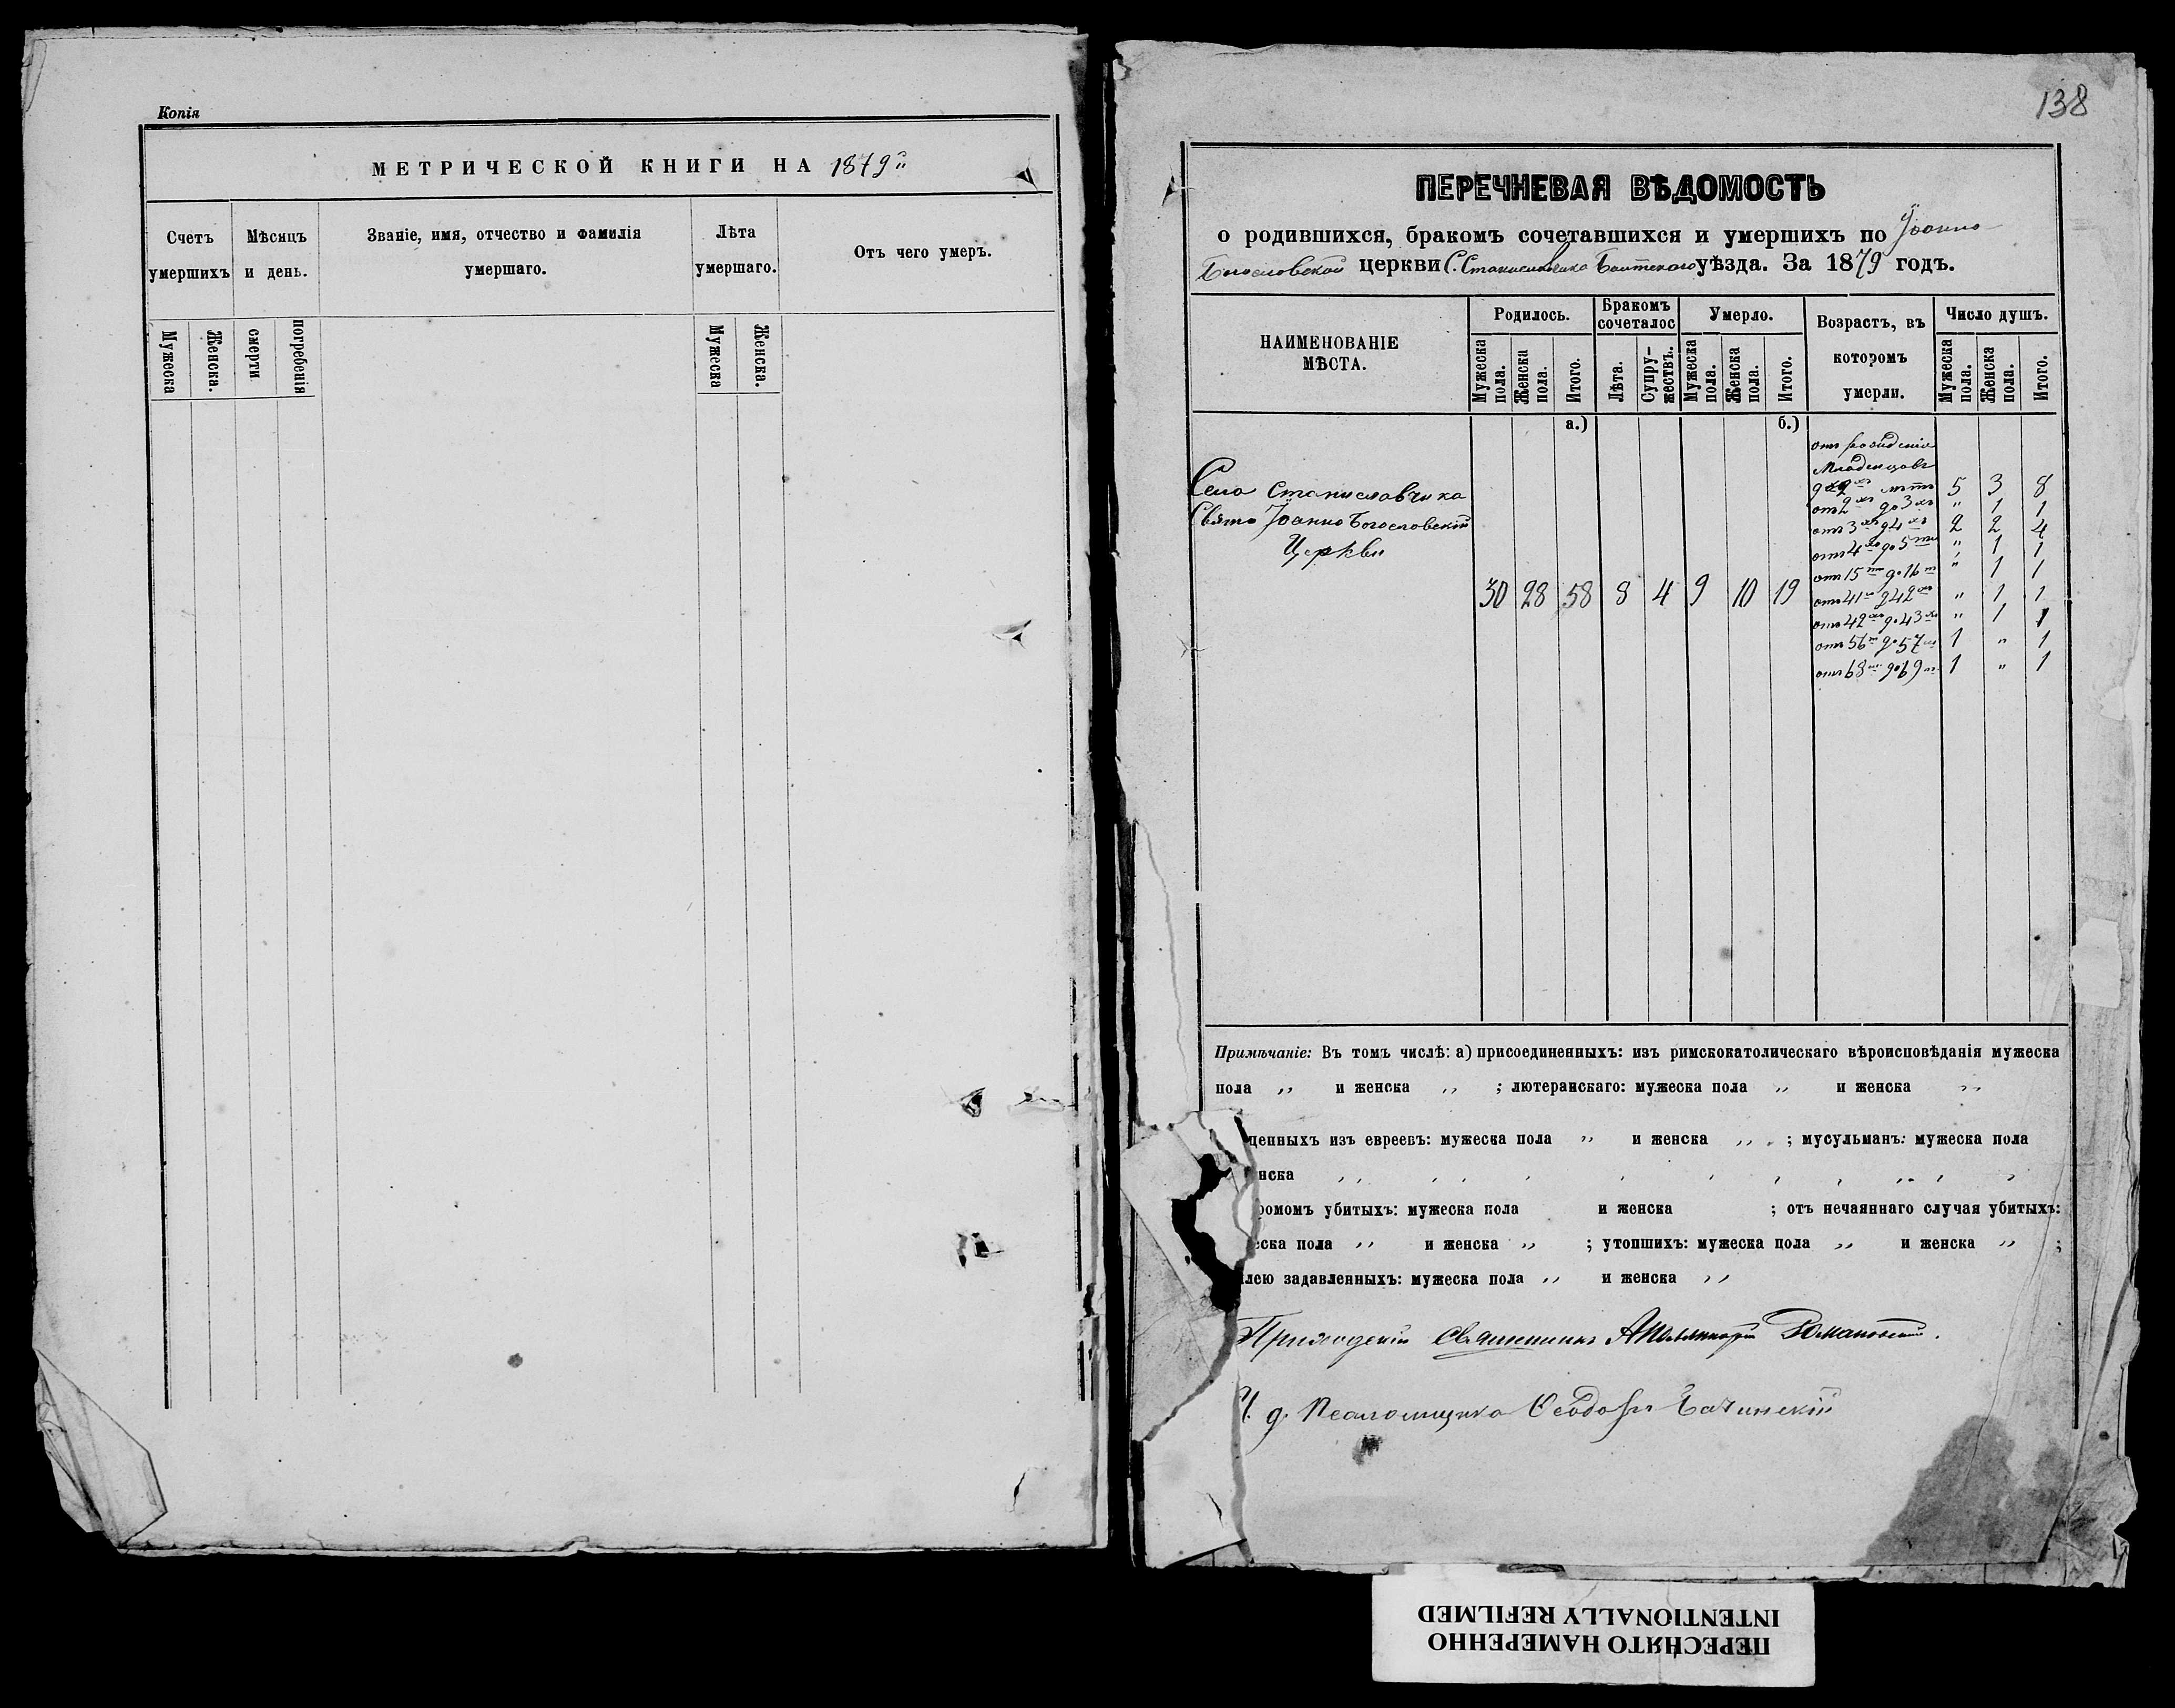 Копія
МЕТРИЧЕСКОЙ КНИГИ НА 1879
Счетъ умершихъ
Мѣсяцъ и день.
Званіе, имя, отчество и фамилія умершаго.
Лѣта умершаго.
Отъ чего умеръ.
Мужеска
Женска.
смерти
погребенія
Мужеска
Женска.
138
ПЕРЕЧНЕВАЯ ВѢДОМОСТЬ
о родившихся, бракомъ сочетавшихся и умершихъ по Іоанно
Богословской церкви С. Станиславчика Балтскаго уѣзда. За 1879 годъ.
НАИМЕНОВАНІЕ МѢСТА.
Родилось.
Бракомъ сочеталос
Умерло.
Возрастъ, въ которомъ умерли.
Число душъ.
Мужеска пола.
Женска пола.
Итого.
Лѣта.
Супружествъ.
Мужеска пола.
Женска пола.
Итого.
Мужеска пола.
Женска пола.
Итого.
а.)
б.)
Село Станиславчика
Свято Іоанно Богословскій
Церкви
30 28 58 8 4 9 10 19
отъ рожденія
Младенцовъ
до 2хъ лѣтъ 5 3 8
отъ 2хъ до 3хъ " 1 1
отъ 3хъ до 4хъ 2 2 4
отъ 4хъ до 5ти " 1 1
отъ 15ти до 16ти " 1 1
отъ 41го до 42хъ " 1 1
отъ 42хъ до 43хъ " 1 1
отъ 56ти до 57ми 1 " 1
отъ 68ми до 69ти 1 " 1
Примѣчаніе: Въ томъ числѣ: а) присоединенныхъ: изъ римскокатолическаго вѣроисповѣданія мужеска
пола „ и женска „ ; лютеранскаго: мужеска пола „ и женска „
щенныхъ изъ евреевъ: мужеска пола „ и женска „ ; мусульманъ: мужеска пола
нска
ромомъ убитыхъ: мужеска пола и женска ; отъ нечаяннаго случая убитыхъ:
еска пола „ и женска „ ; утопшихъ: мужеска пола „ и женска „ ;
лею задавленныхъ: мужеска пола „ и женска „
Приходскій Священникъ Аполлинарій Романовскій.
И. д. Псаломщика Ѳеодоръ Бачинскій
ПЕРЕСНЯТО НАМЕРЕННО
INTENTIONALLY REFILMED